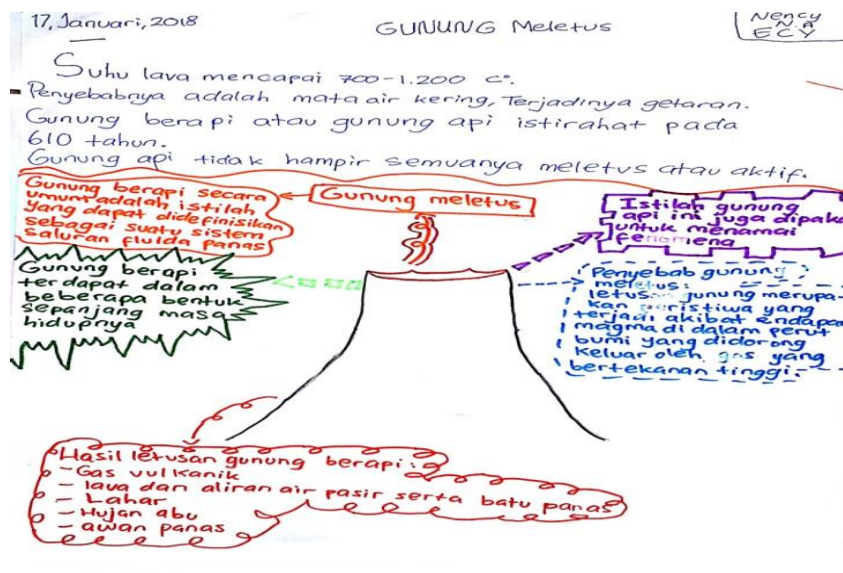 17, Januari, 2018
GUNUNG Meletus
Nency
N.A
ECY
Suhu lava mencapai 700-1.200 C°.
Penyebabnya adalah mata air kering, Terjadinya getaran.
Gunung berapi atau gunung api istirahat pada
610 tahun.
Gunung api tidak hampir semuanya meletus atau aktif.
Gunung berapi secara
umum adalah istilah
yang dapat didefinisikan
sebagai suatu sistem
saluran fluida panas
Gunung meletus
Istilah gunung
api ini juga dipaka
untuk menamai
fenomena
Gunung berapi
terdapat dalam
beberapa bentuk
sepanjang masa
hidupnya
Penyebab gunung
meletus:
letusan gunung merupa-
kan peristiwa yang
terjadi akibat endapan
magma di dalam perut
bumi yang didorong
keluar oleh gas yang
bertekanan tinggi.
Hasil letusan gunung berapi:
- Gas vulkanik
- lava dan aliran air pasir serta batu panas
- Lahar
- Hujan abu
- awan panas